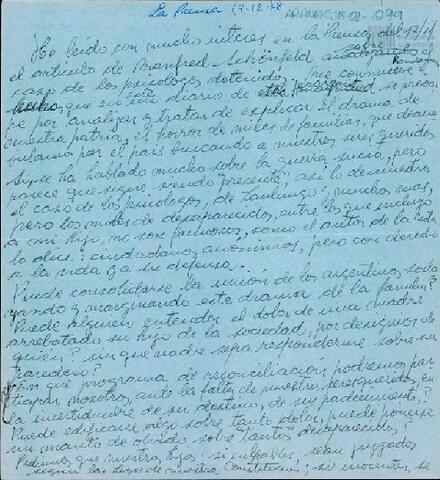 La Prensa 19-12-78
He leído con mucho interés en La Prensa del 17/12
el artículo de Manfred Schönfeld sobre
caso de los psicólogos detenidos; me conmueve el
que un diario de se preocu
pe por analizar y tratar de explicar el drama de
nuestra patria, el horror de miles de familias, que deam
bulamos por el país buscando a nuestros seres queridos
Aquí se ha hablado mucho sobre la guerra sucia, pero
parece que sigue siendo "presente", así lo demuestra
el caso de los psicólogos, de y muchos mas,
pero los miles de desaparecidos, entre los que incluyo
a mi hijo, no son famosos, como el autor de la nota
lo dice: ciudadanos anonimos, pero con derecho
a la vida y a su defensa...
Puede consolidarse la union de los argentinos sosla
yando y marginando este drama de la familia?
Puede alguien entender el dolor de una madre
arrebatado su hijo de la sociedad, por designios de
quien? y que nadie sepa responderme sobre su
paradero?
Con que programa de reconciliación podremos par
ticipar nosotros, ante la falta de nuestros seres queridos, en
la incertidumbre de su destino, de sus padecimientos?
Puede edificarse algo sobre tanto dolor, puede ponerse
un manto de olvido sobre tantos desaparecidos?
Pedimos que nuestros hijos si culpables, sean juzgados
segun las leyes de nuestra Constitucion; si inocentes, se